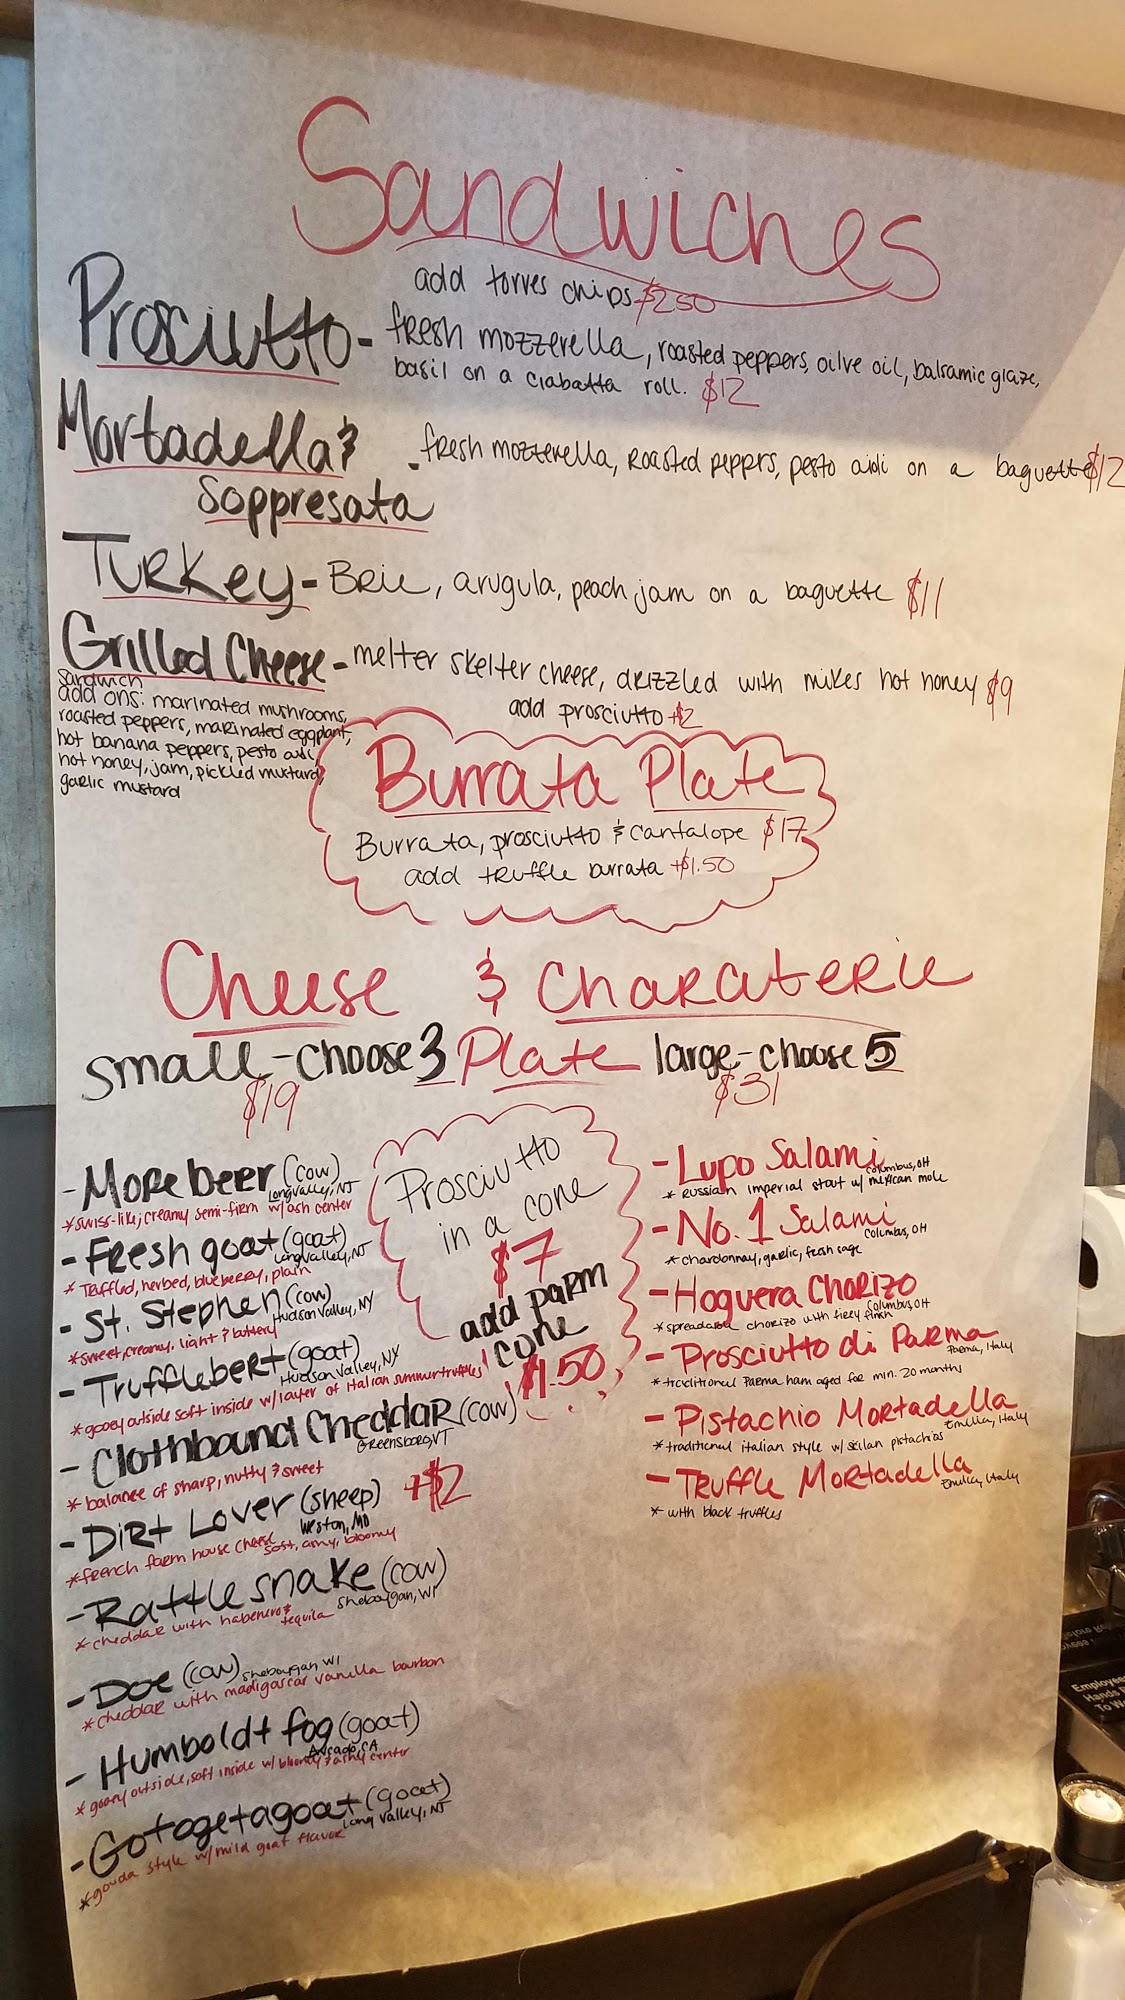 Sandwiches
add torres chips $2.50
Prosciutto - fresh mozzerella, roasted peppers, oilve oil, balsamic glaze,
basil on a ciabatta roll. $12
Mortadella & - fresh mozzerella, roasted peppers, pesto aioli on a baguette $12
Soppresata
Turkey - Brie, arugula, peach jam on a baguette $11
Grilled Cheese - melter skelter cheese, drizzled with mikes hot honey $9
add prosciutto +$2
sandwich
add ons: marinated mushrooms,
roasted peppers, marinated eggplant,
hot banana peppers, pesto aioli,
hot honey, jam, pickled mustard,
garlic mustard
Burrata Plate
Burrata, prosciutto & cantalope $17
add truffle burrata +$1.50
Cheese & Charaterie
small - choose 3 Plate large - choose 5
$19 $31
Prosciutto
in a cone
$7
add parm
cone
$1.50
- More beer (cow)
Long Valley, NJ
*swiss-like; creamy semi-firm w/ash center
- Fresh goat (goat)
Long Valley, NJ
*Truffled, herbed, blueberry, plain
- St. Stephen (cow)
Hudson Valley, NY
*sweet, creamy, light & buttery
- Trufflebert (goat)
Hudson Valley, NY
*gooey outside soft inside w/layer of Italian summer truffles
- Clothbound Cheddar (cow)
Greensboro, VT
*balance of sharp, nutty & sweet
- Dirt Lover (sheep) +$2
Weston, MO
*french farm house cheese soft, ashy, bloomy
- Rattlesnake (cow)
Sheboygan, WI
*cheddar with habenero &
tequila
- Doe (cow) Sheboygan WI
*cheddar with madigascar vanilla bourbon
- Humboldt fog (goat)
Arcada, CA
*gooey outside, soft inside w/ bloomy & ashy center
- Gotogetagoat (goat)
Long Valley, NJ
*gouda style w/mild goat flavor
- Lupo Salami
Columbus, OH
*Russian imperial stout w/ mexican mole
- No. 1 Salami
Columbus, OH
*chardonnay, garlic, fresh sage
- Hoguera Chorizo
Columbus, OH
*spreadable chorizo with fiery finish
- Prosciutto di Parma
Parma, Italy
*traditional Parma ham aged for min. 20 months
- Pistachio Mortadella
Emilia, Italy
*traditional italian style w/ sicilan pistachios
- Truffle Mortadella
Emilia, Italy
*with black truffles
Employees
Hands
To W